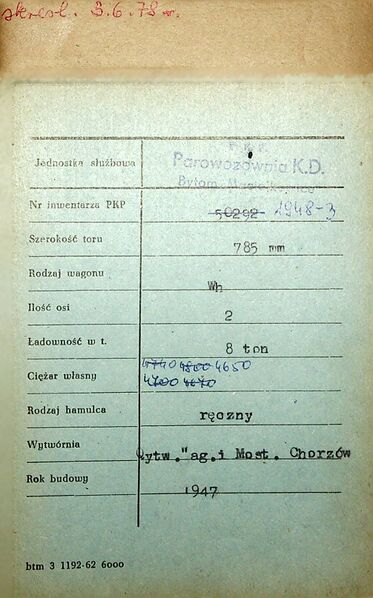 skreśl. 3.6.78 r.
P.K.P.
Jednostka służbowa Parowozownia K.D.
Bytom
Nr inwentarza PKP 50292 1948-3
Szerokość toru 785 mm
Rodzaj wagonu Wh
Ilość osi 2
Ładowność w t. 8 ton
4740 4800 4650
Ciężar własny 4700 4670
Rodzaj hamulca ręczny
Wytwórnia Wytw."ag.i Most. Chorzów
Rok budowy 1947
btm 3 1192-62 6000